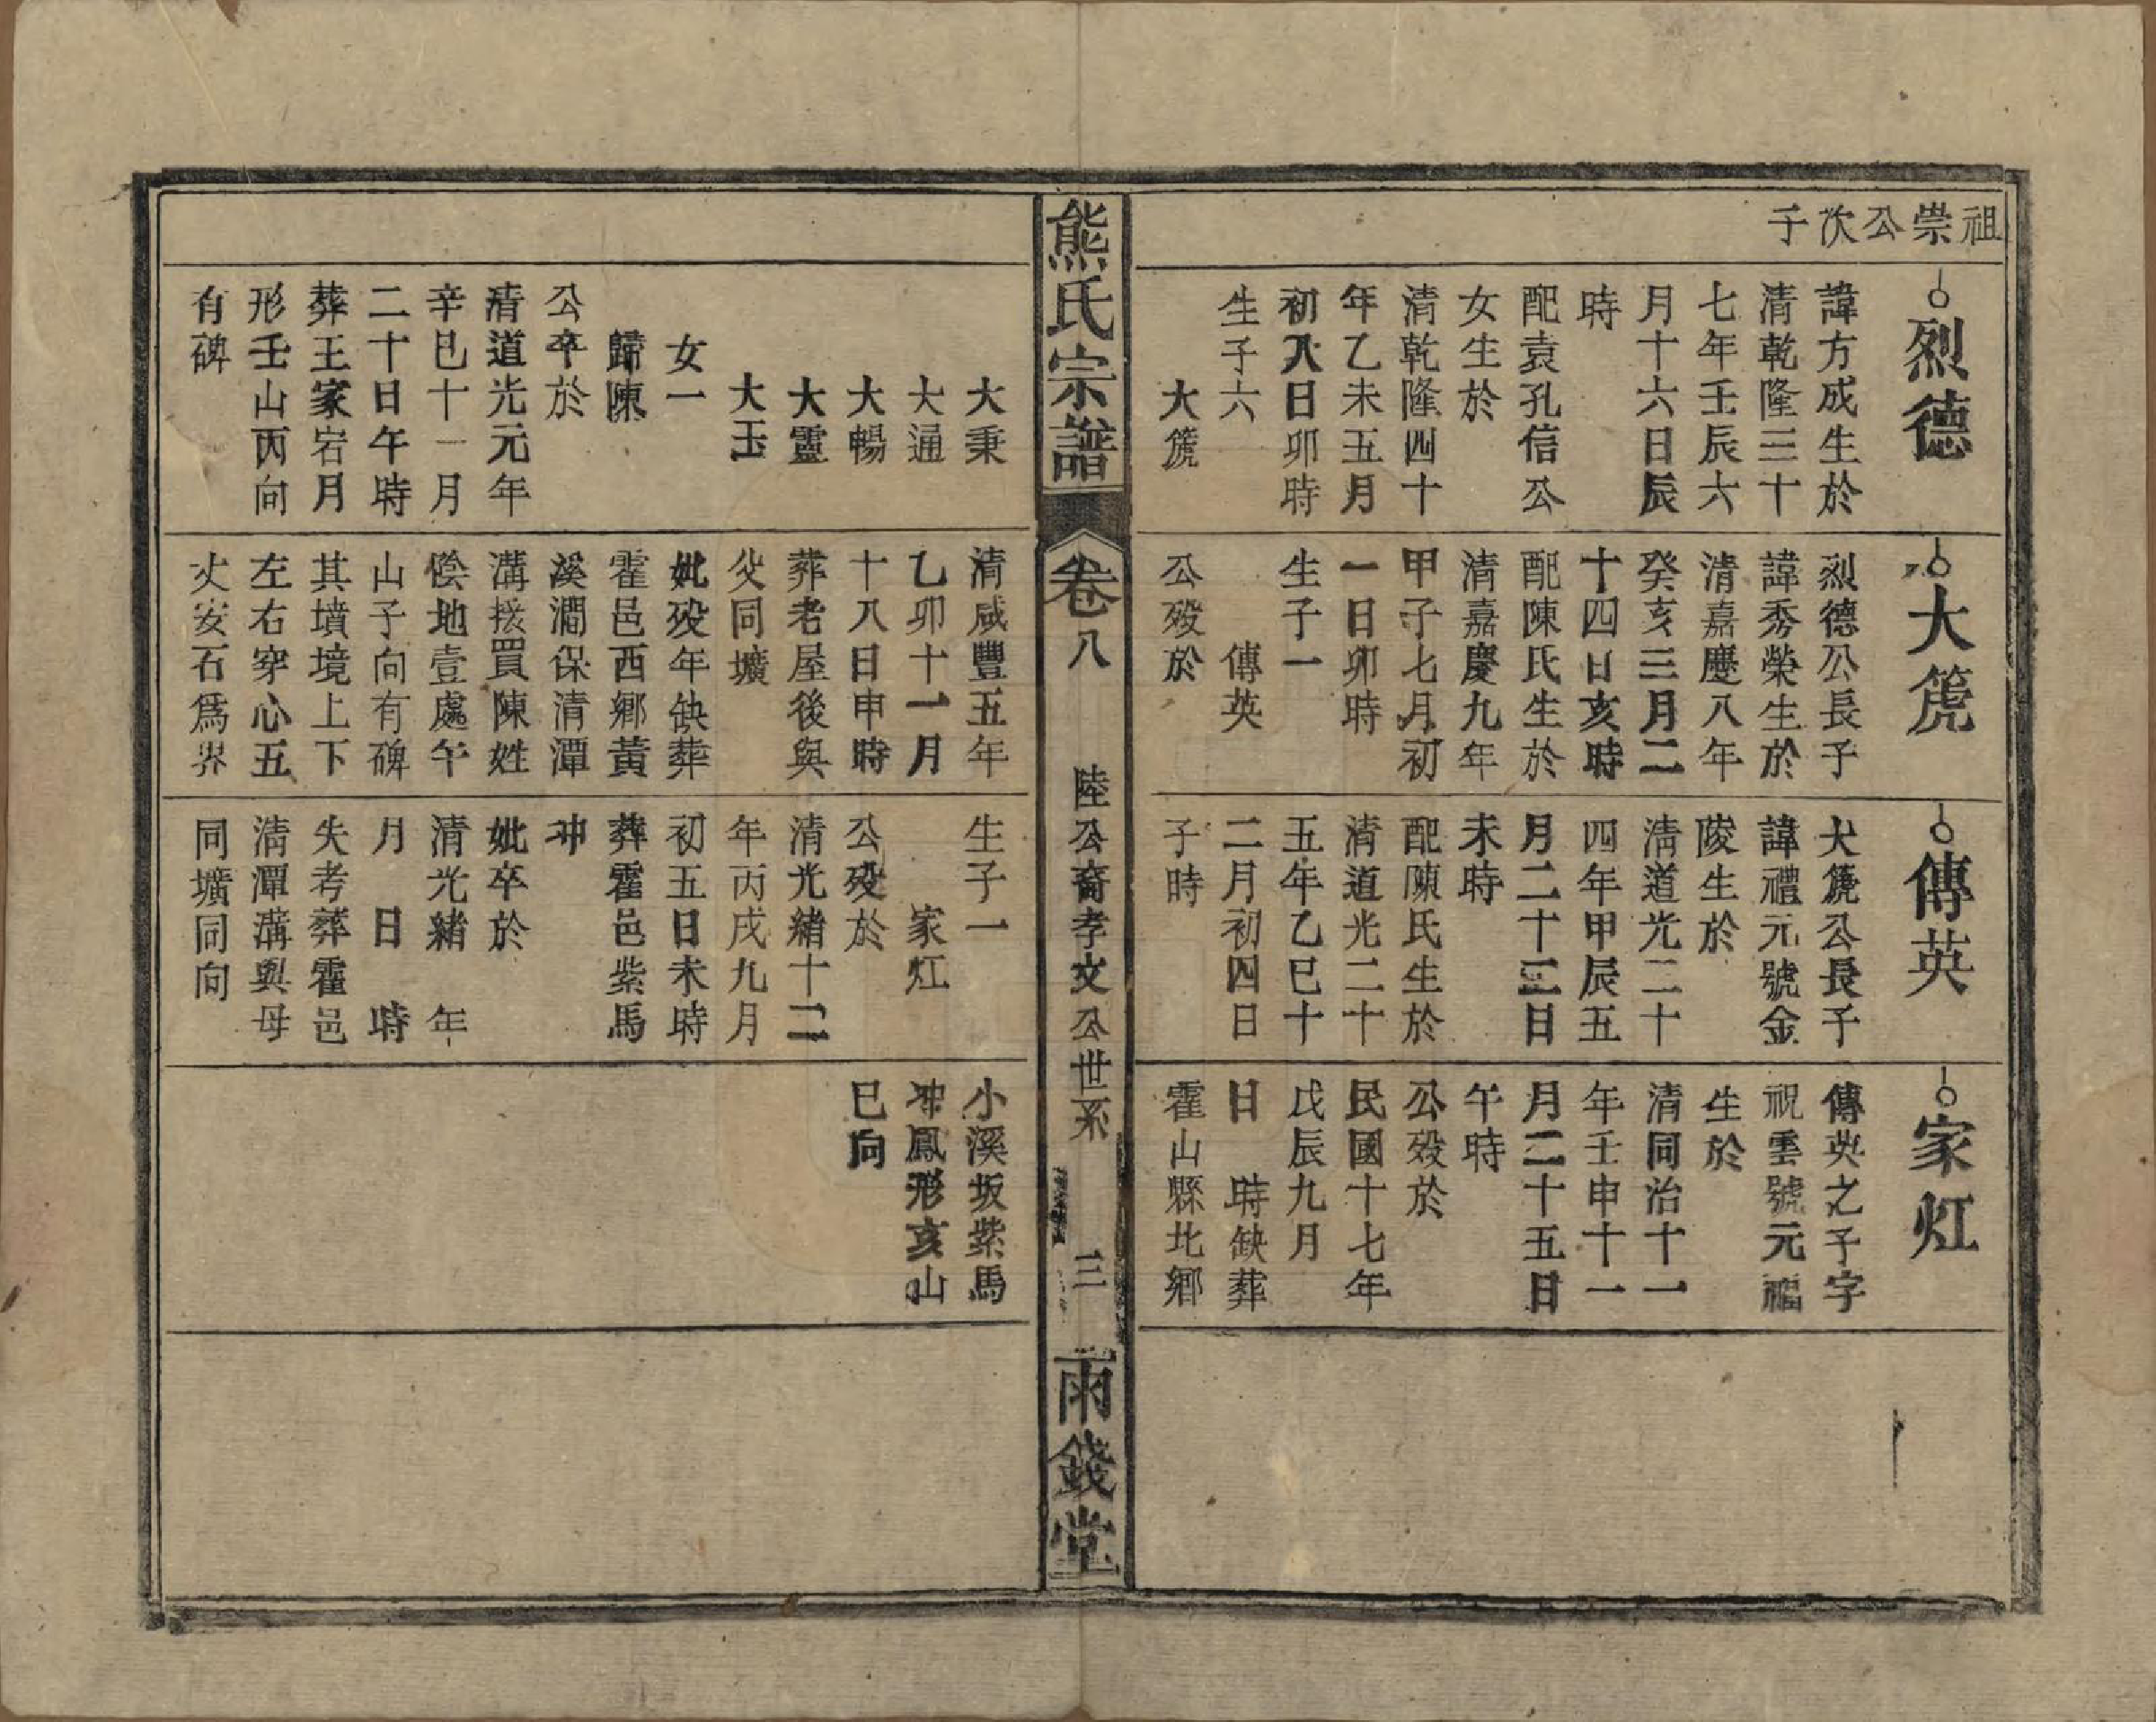 祖崇公次子
烈德
諱方成生於
清乾隆三十
七年壬辰六
月十六日辰
時
配袁孔信公
女生於
清乾隆四十
年乙未五月
初八日卯時
生子六
大箎
大秉
大通
大暢
大靈
大玉
女一
歸陳
公卒於
清道光元年
辛巳十一月
二十日午時
葬王家宕月
形壬山丙向
有碑
大箎
烈德公長子
諱秀榮生於
清嘉慶八年
癸亥三月二
十四日亥時
配陳氏生於
清嘉慶九年
甲子七月初
一日卯時
生子一
傳英
公歿於
清咸豐五年
乙卯十一月
十八日申時
葬老屋後與
父同壙
妣歿年缺葬
霍邑西鄉黃
溪澗保清潭
溝接買陳姓
陰地壹處午
山子向有碑
其墳境上下
左右穿心五
丈安石爲界
傳英
大箎公長子
諱禮元號金
陵生於
清道光二十
四年甲辰五
月二十三日
未時
配陳氏生於
清道光二十
五年乙巳十
二月初四日
子時
生子一
家灴
公歿於
清光緒十二
年丙戌九月
初五日未時
葬霍邑紫馬
冲
妣卒於
清光緒　年
月　日　時
失考葬霍邑
清潭溝與母
同壙同向
家灴
傳英之子字
祝雲號元福
生於
清同治十一
年壬申十一
月二十五日
午時
公歿於
民國十七年
戊辰九月
日　時缺葬
霍山縣北鄉
小溪坂紫馬
冲鳳形亥山
巳向
熊氏宗譜
卷八
陸公裔孝文公世系
三
雨錢堂